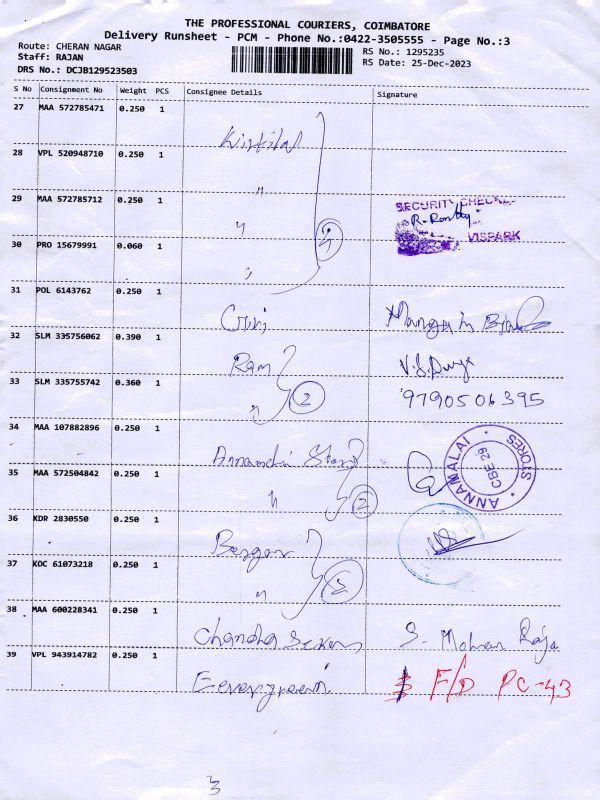 THE PROFESSIONAL COURIERS, COIMBATORE
Delivery Runsheet - PCM - Phone No.:0422-3505555 - Page No.:3
Route: CHERAN NAGAR
RS No.: 1295235
Staff: RAJAN
RS Date: 25-Dec-2023
DRS No.: DCJB129523503
S No Consignment No Weight PCS Consignee Details Signature
27 MAA 572785471 0.250 1
28 VPL 520948710 0.250 1
"
29 MAA 572785712 0.250 1
SECURITY CHECKED
"
VISPARK
30 PRO 15679991 0.060 1
4
31 POL 6143762 0.250 1
32 SLM 335756062 0.390 1
Ram
33 SLM 335755742 0.360 1
9790506395
" 2
34 MAA 107882896 0.250 1
ANNAMALAI STORES
CBE 29
35 MAA 572504842 0.250 1
" 2
36 KDR 2830550 0.250 1
37 KOC 61073218 0.250 1
" 2
38 MAA 600228341 0.250 1
S. Mohan Raja
39 VPL 943914782 0.250 1
F/D PC-43
3